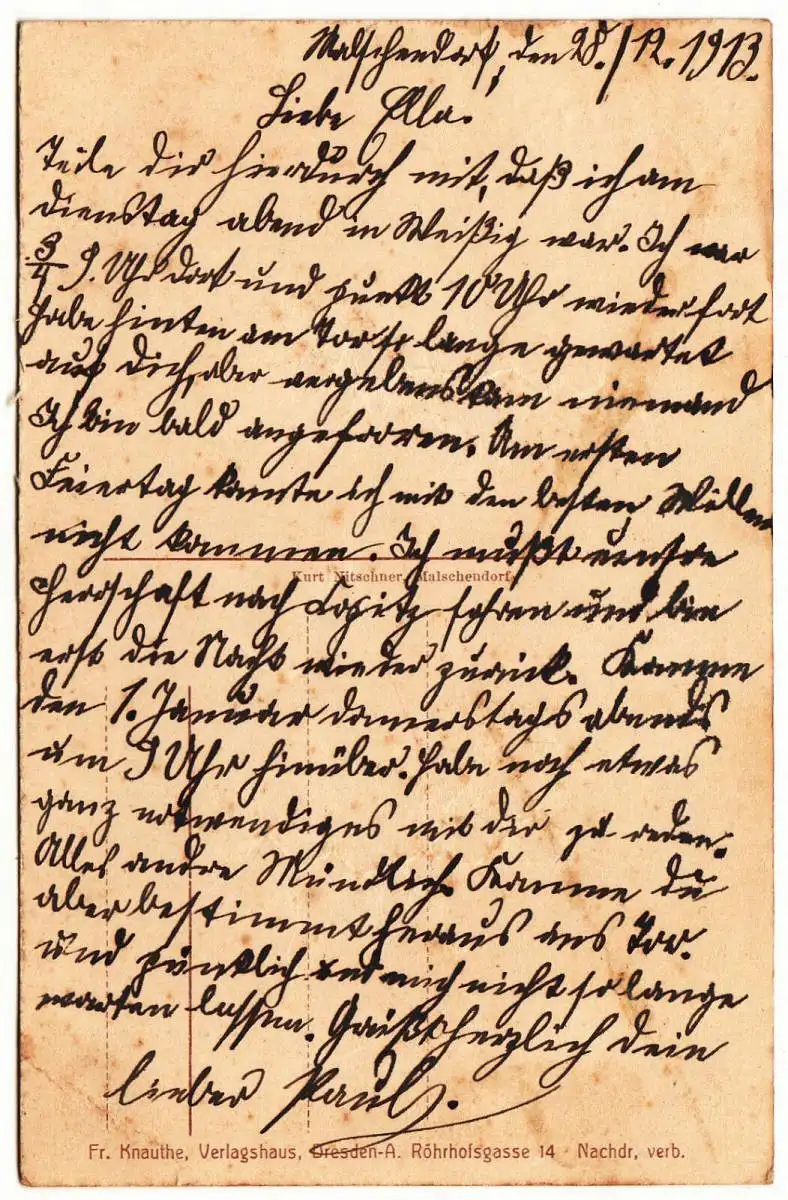 Malschendorf, den 28./12.1913.
Liebe Ella.
Teile dir hierdurch mit, daß ich am
Dienstag abend in Weißig war. Ich war
3/4 9. Uhr dort und punkt 10 Uhr wieder fort
habe hinten am Tor so lange gewartet
auf dich, aber vergebens kam niemand
Ich bin bald angefroren. Am ersten
Feiertag konnte ich mit den besten Willen
nicht kommen. Ich mußt unsre
Kurt Nitschner, Malschendorf
Herrschaft nach Copitz fahren und bin
erst die Nacht wieder zurück. Komme
den 1. Januar donnerstags abends
um 9 Uhr hinüber. Habe noch etwas
ganz notwendiges mit dir zu reden.
Alles andre Mündlich. Komme du
aber bestimmt heraus ans Tor.
und pünktlich und mich nicht so lange
warten lassen. Grüßt herzlich dein
lieber Paul.
Fr. Knauthe, Verlagshaus, Dresden-A. Röhrhofsgasse 14 Nachdr, verb.